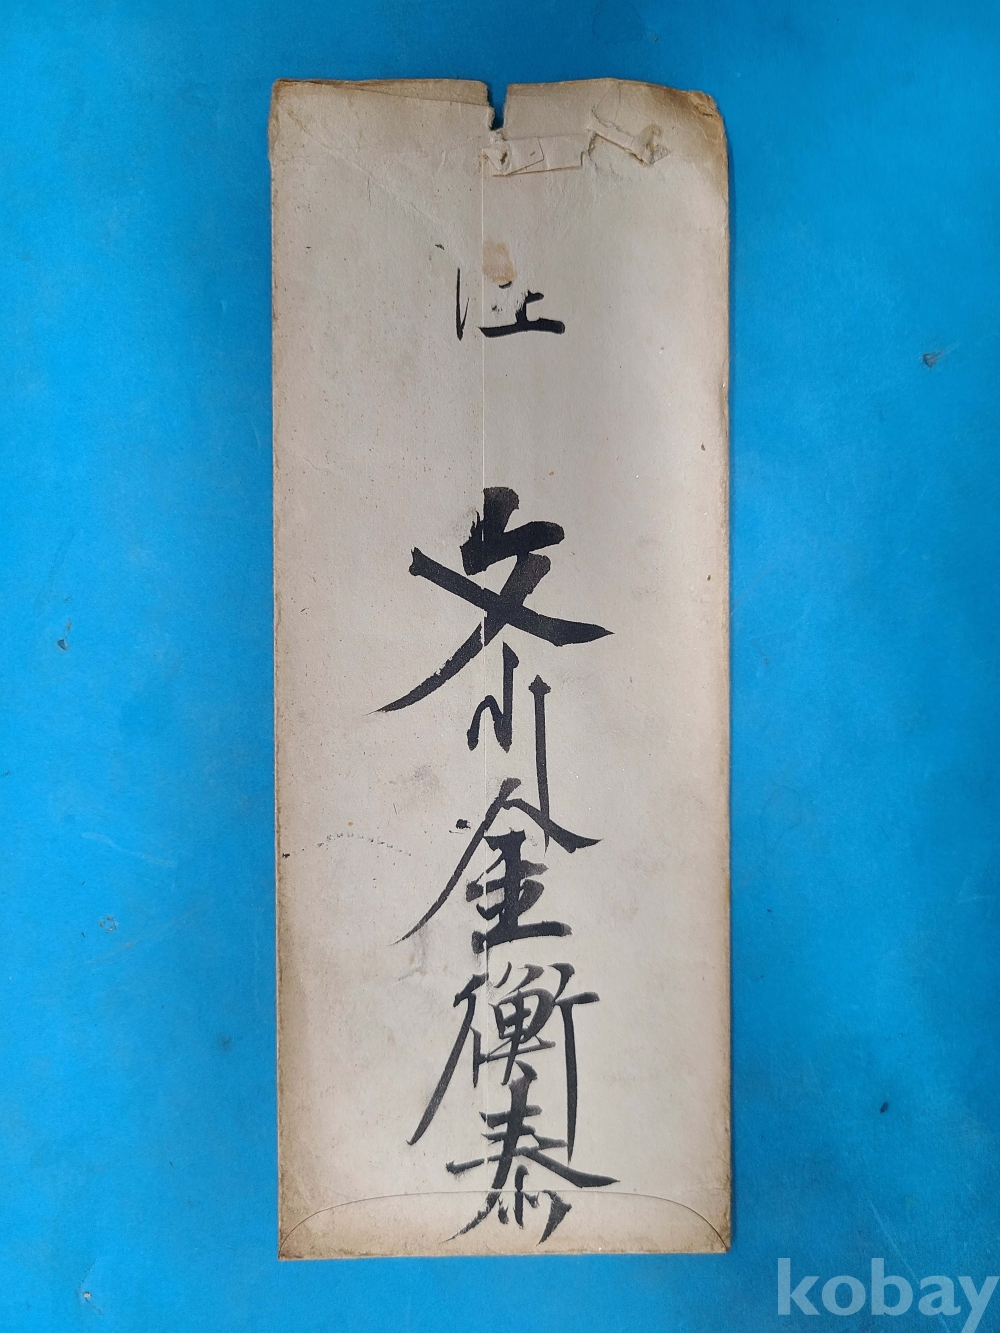 文川金衡泰
kobay